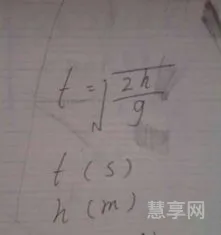 t = √(2h/g)
t (s)
h (m)
慧享网